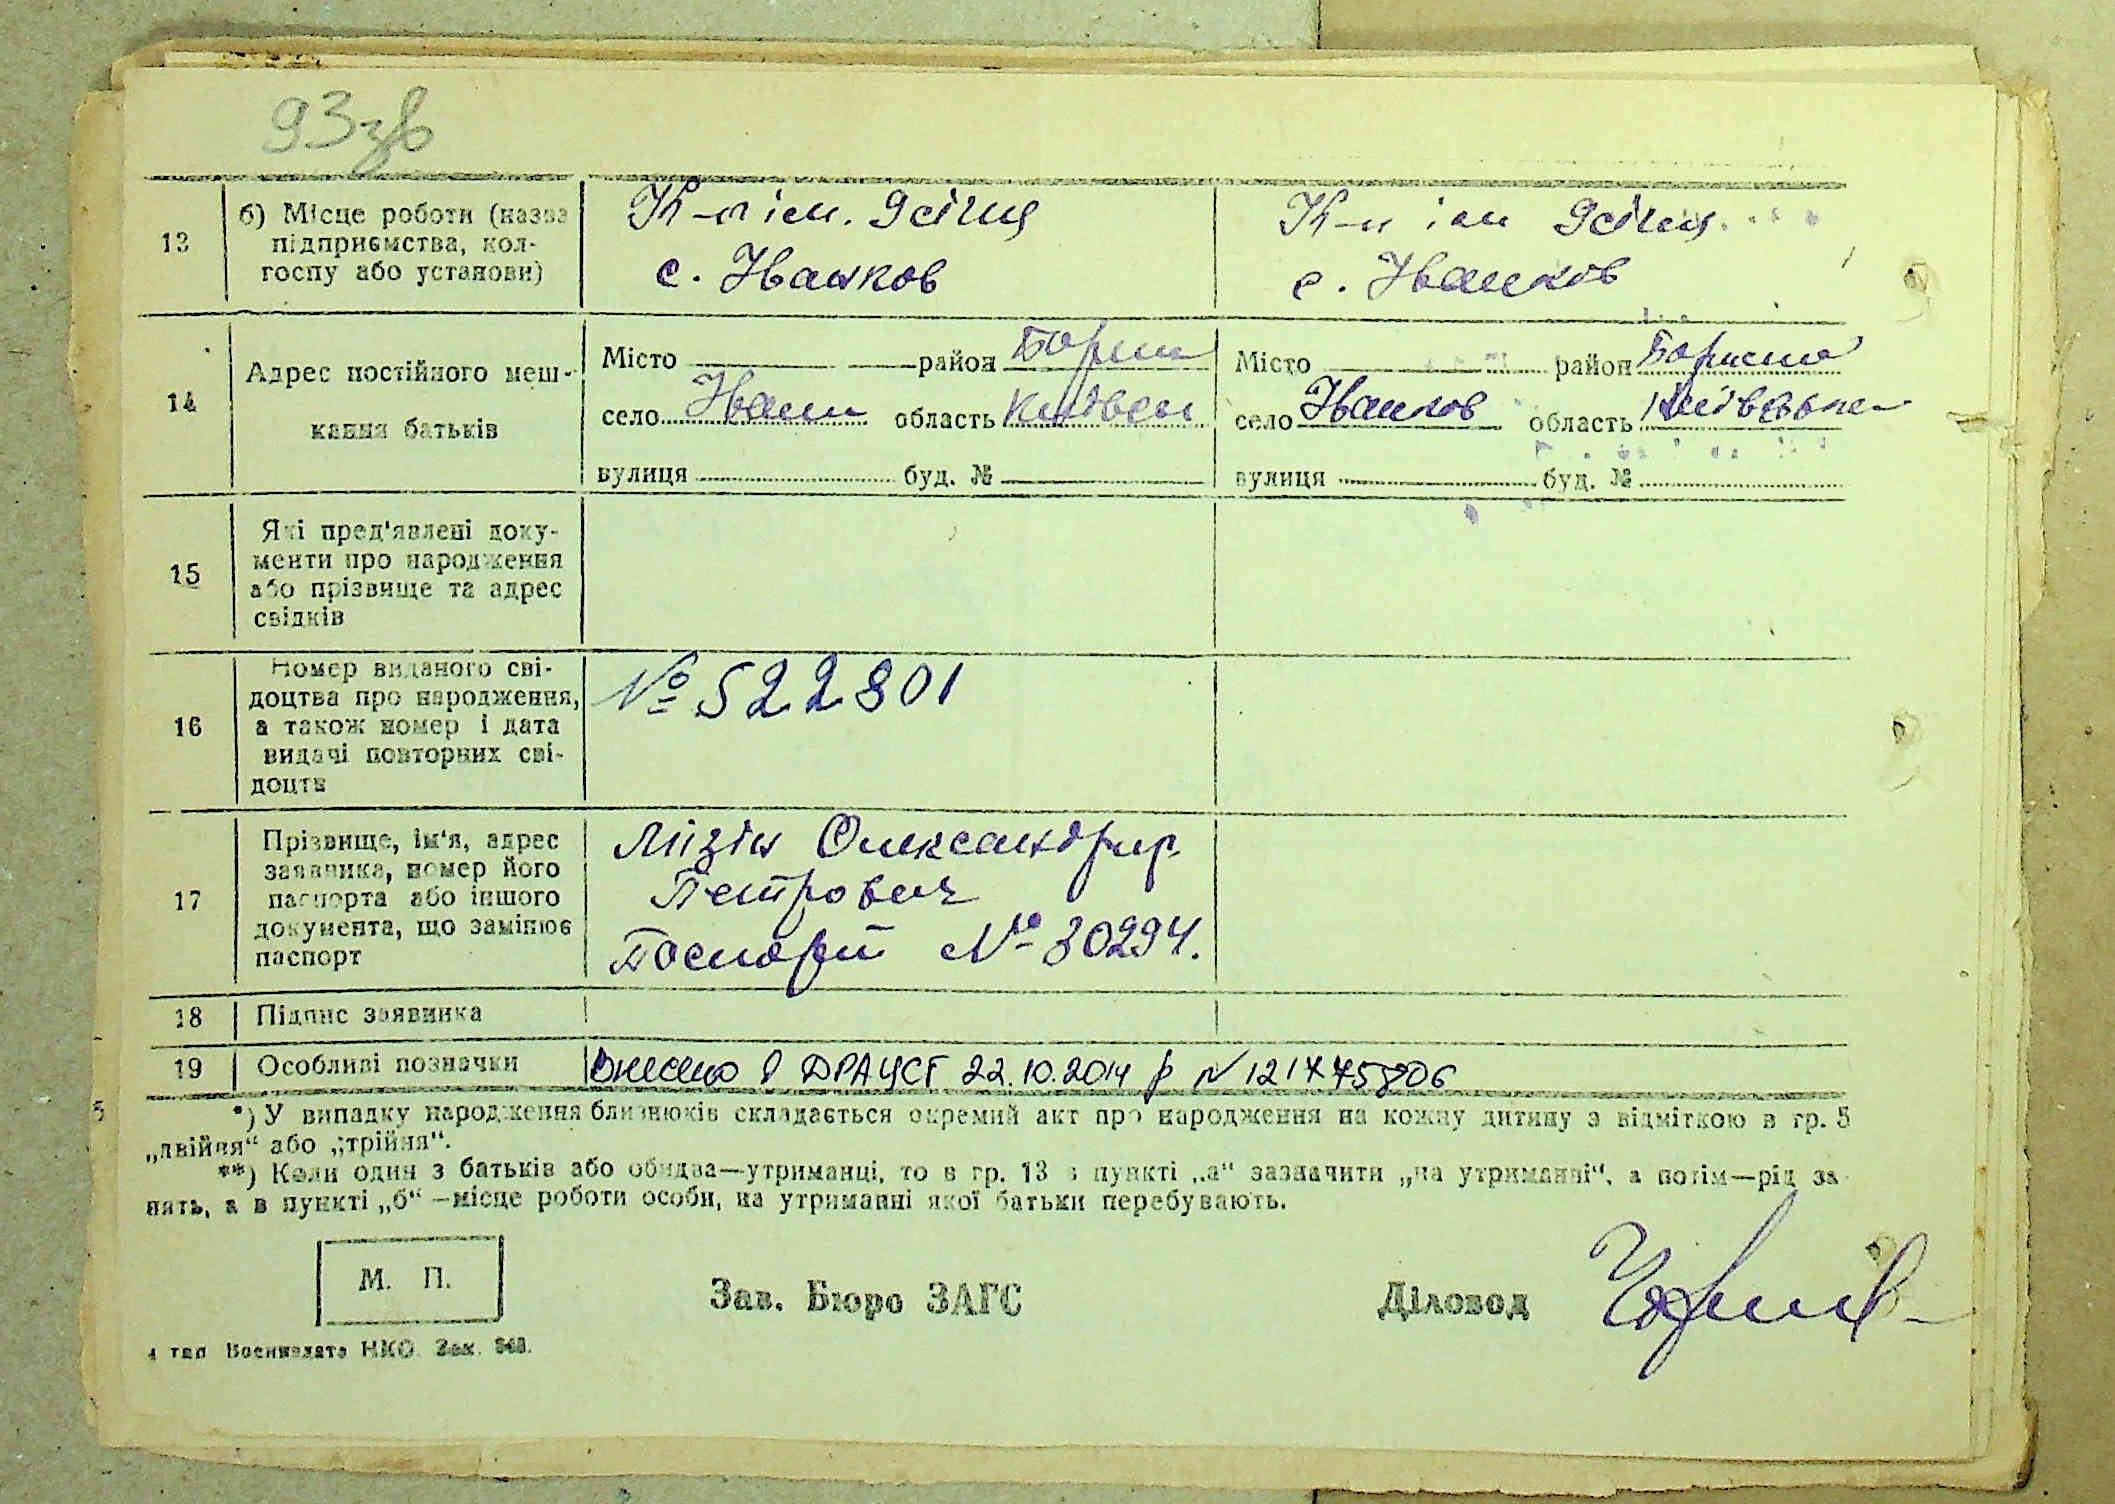 93зв
13
б) Місце роботи (назва
підприємства, кол-
госпу або установи)
К-п ім.
с. Іванков
К-п ім
с. Іванков
14
Адрес постійного меш-
кання батьків
Місто район Борисп
село Іванк область Київськ
вулиця буд. №
Місто район Бориспо
село Іванков область Київська
вулиця буд. №
15
Які пред'явлені доку-
менти про народження
або прізвище та адрес
свідків
16
Номер виданого сві-
доцтва про народження,
а також номер і дата
видачі повторних сві-
доцтв
№ 522801
17
Прізвище, ім'я, адрес
заявника, номер його
паспорта або іншого
документа, що замінює
паспорт
Лизін Олександр
Петрович
Паспорт № 30294.
18 Підпис заявника
19 Особливі позначки Внесено в ДРАЦСГ 22.10.2014 р
*) У випадку народження близнюків складається окремий акт про народження на кожну дитину з відміткою в гр. 5
„двійня“ або „трійня“.
**) Коли один з батьків або обидва—утриманці, то в гр. 13 в пункті „а“ зазначити „на утриманні“, а потім—рід за-
нять, а в пункті „б“ —місце роботи особи, на утриманні якої батьки перебувають.
М. П.
Зав. Бюро ЗАГС
Діловод
4 тип Воениздата НКО. Зак. 848.